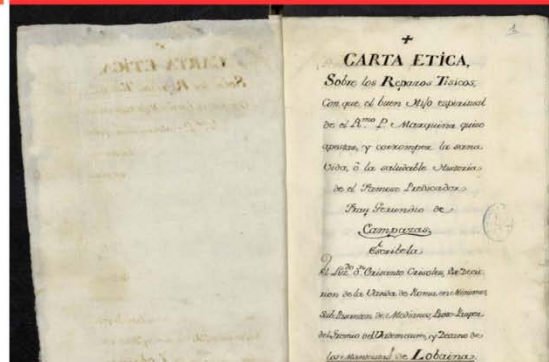 1
CARTA ETICA,
Sobre los Reparos Tisicos,
Con que el buen Hijo espiritual
de el R.mo P. Marquina quiso
apestar, y corromper la sana
Vida, ô la saludable Historia
de el Famoso Predicador
Fray Gerundio de
Campazas,
Escribela
El Liz.do d.n Crisanto Crisoles,
rion de la Varida de Roma en Menores
del Gremio del Academico, y Decano de
los Manteistas de Lobaina